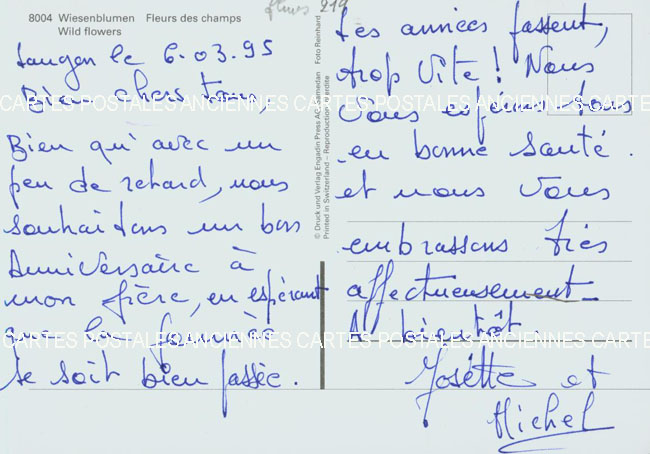 8004 Wiesenblumen Fleurs des champs
Wild flowers
fleurs 219
le 6.03.95
Bien chers tous,
Bien qu'avec un
peu de retard, nous
souhaitons un bon
Anniversaire à
mon frère, en espérant
que la journée
se soit bien passée.
© Druck und Verlag Engadin Press AG, Samedan Foto Reinhard
Printed in Switzerland – Reproduction interdite
Les années passent,
trop vite! Nous
vous espérons tous
en bonne santé.
et nous vous
embrassons très
affectueusement
A bientôt.
Josette et
Michel
CARTES POSTALES ANCIENNES CARTES POSTALES ANCIENNES CARTES
CARTES POSTALES ANCIENNES CARTES POSTALES ANCIENNES CARTES